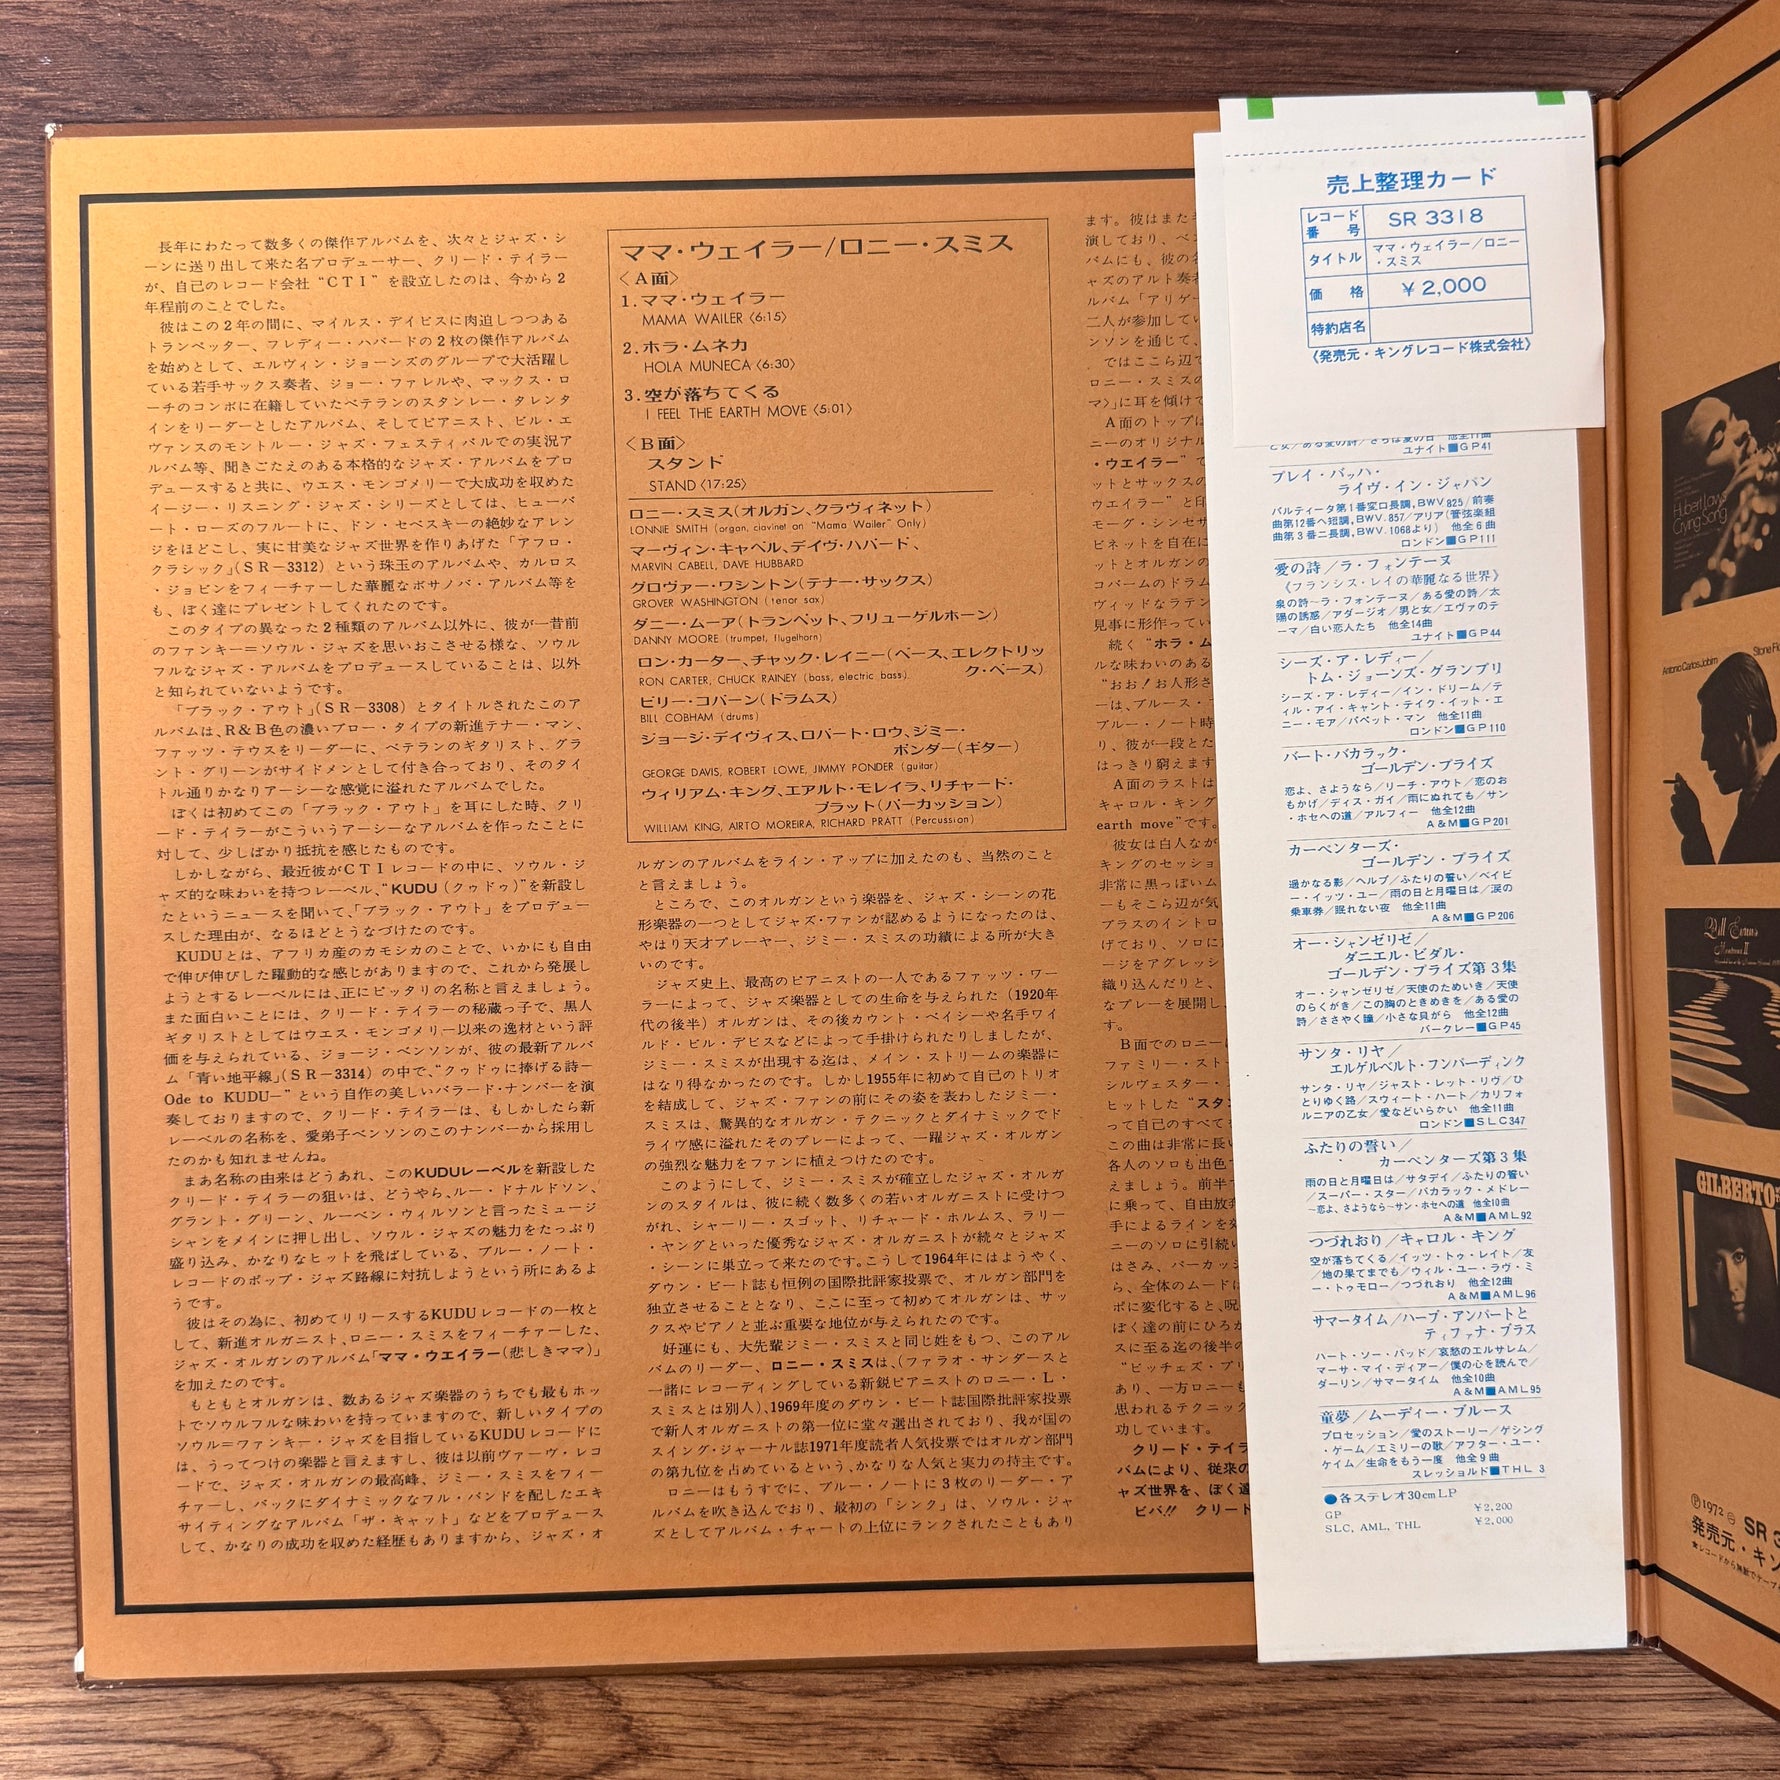 長年にわたって数多くの傑作アルバムを、次々とジャズ・シ
ーンに送り出して来た名プロデューサー、クリード・テイラー
が、自己のレコード会社“CTI”を設立したのは、今から2
年程前のことでした。
彼はこの2年の間に、マイルス・デイビスに肉迫しつつある
トランペッター、フレディー・ハバードの2枚の傑作アルバム
を始めとして、エルヴィン・ジョーンズのグループで大活躍し
ている若手サックス奏者、ジョー・ファレルや、マックス・ロ
ーチのコンボに在籍していたベテランのスタンレー・タレンタ
インをリーダーとしたアルバム、そしてピアニスト、ビル・エ
ヴァンスのモントルー・ジャズ・フェスティバルでの実況ア
ルバム等、聞きごたえのある本格的なジャズ・アルバムをプロ
デュースすると共に、ウエス・モンゴメリーで大成功を収めた
イージー・リスニング・ジャズ・シリーズとしては、ヒューバ
ート・ローズのフルートに、ドン・セベスキーの絶妙なアレン
ジをほどこし、実に甘美なジャズ世界を作りあげた「アフロ・
クラシック」(SR−3312)という珠玉のアルバムや、カルロス
・ジョビンをフィーチャーした華麗なボサノバ・アルバム等を
も、ぼく達にプレゼントしてくれたのです。
このタイプの異なった2種類のアルバム以外に、彼が一昔前
のファンキー=ソウル・ジャズを思いおこさせる様な、ソウル
フルなジャズ・アルバムをプロデュースしていることは、以外
と知られていないようです。
「ブラック・アウト」(SR−3308)とタイトルされたこのア
ルバムは、R&B色の濃いブロー・タイプの新進テナー・マン、
ファッツ・テウスをリーダーに、ベテランのギタリスト、グラ
ント・グリーンがサイドメンとして付き合っており、そのタイ
トル通りかなりアーシーな感覚に溢れたアルバムでした。
ぼくは初めてこの「ブラック・アウト」を耳にした時、クリ
ード・テイラーがこういうアーシーなアルバムを作ったことに
対して、少しばかり抵抗を感じたものです。
しかしながら、最近彼がCTIレコードの中に、ソウル・ジ
ャズ的な味わいを持つレーベル、“KUDU(クゥドゥ)”を新設し
たというニュースを聞いて、「ブラック・アウト」をプロデュー
スした理由が、なるほどとうなづけたのです。
KUDUとは、アフリカ産のカモシカのことで、いかにも自由
で伸び伸びした躍動的な感じがありますので、これから発展し
ようとするレーベルには、正にピッタリの名称と言えましょう。
また面白いことには、クリード・テイラーの秘蔵っ子で、黒人
ギタリストとしてはウエス・モンゴメリー以来の逸材という評
価を与えられている、ジョージ・ベンソンが、彼の最新アルバ
ム「青い地平線」(SR−3314)の中で、“クゥドゥに捧げる詩−
Ode to KUDU−”という自作の美しいバラード・ナンバーを演
奏しておりますので、クリード・テイラーは、もしかしたら新
レーベルの名称を、愛弟子ベンソンのこのナンバーから採用し
たのかも知れませんね。
まあ名称の由来はどうあれ、このKUDUレーベルを新設した
クリード・テイラーの狙いは、どうやら、ルー・ドナルドソン、
グラント・グリーン、ルーベン・ウィルソンと言ったミュージ
シャンをメインに押し出し、ソウル・ジャズの魅力をたっぷり
盛り込み、かなりなヒットを飛ばしている、ブルー・ノート・
レコードのポップ・ジャズ路線に対抗しようという所にあるよ
うです。
彼はその為に、初めてリリースするKUDUレコードの一枚と
して、新進オルガニスト、ロニー・スミスをフィーチャーした、
ジャズ・オルガンのアルバム「ママ・ウエイラー(悲しきママ)」
を加えたのです。
もともとオルガンは、数あるジャズ楽器のうちでも最もホッ
トでソウルフルな味わいを持っていますので、新しいタイプの
ソウル=ファンキー・ジャズを目指しているKUDUレコードに
は、うってつけの楽器と言えますし、彼は以前ヴァーヴ・レコ
ードで、ジャズ・オルガンの最高峰、ジミー・スミスをフィー
チャーし、バックにダイナミックなフル・バンドを配したエキ
サイティングなアルバム「ザ・キャット」などをプロデュース
して、かなりの成功を収めた経歴もありますから、ジャズ・オ
ママ・ウェイラー/ロニー・スミス
〈A面〉
1.ママ・ウェイラー
MAMA WAILER〈6:15〉
2.ホラ・ムネカ
HOLA MUNECA〈6:30〉
3.空が落ちてくる
I FEEL THE EARTH MOVE〈5:01〉
〈B面〉
スタンド
STAND〈17:25〉
ロニー・スミス(オルガン、クラヴィネット)
LONNIE SMITH (organ, clavinet on “Mama Wailer” Only)
マーヴィン・キャベル、デイヴ・ハバード、
MARVIN CABELL, DAVE HUBBARD
グロヴァー・ワシントン(テナー・サックス)
GROVER WASHINGTON (tenor sax)
ダニー・ムーア(トランペット、フリューゲルホーン)
DANNY MOORE (trumpet, flugelhorn)
ロン・カーター、チャック・レイニー(ベース、エレクトリッ
ク・ベース)
RON CARTER, CHUCK RAINEY (bass, electric bass)
ビリー・コバーン(ドラムス)
BILL COBHAM (drums)
ジョージ・デイヴィス、ロバート・ロウ、ジミー・
ポンダー(ギター)
GEORGE DAVIS, ROBERT LOWE, JIMMY PONDER (guitar)
ウィリアム・キング、エアルト・モレイラ、リチャード・
プラット(パーカッション)
WILLIAM KING, AIRTO MOREIRA, RICHARD PRATT (Percussion)
ルガンのアルバムをライン・アップに加えたのも、当然のこと
と言えましょう。
ところで、このオルガンという楽器を、ジャズ・シーンの花
形楽器の一つとしてジャズ・ファンが認めるようになったのは、
やはり天才プレーヤー、ジミー・スミスの功績による所が大き
いのです。
ジャズ史上、最高のピアニストの一人であるファッツ・ワー
ラーによって、ジャズ楽器としての生命を与えられた(1920年
代の後半)オルガンは、その後カウント・ベイシーや名手ワイ
ルド・ビル・デビスなどによって手掛けられたりしましたが、
ジミー・スミスが出現する迄は、メイン・ストリームの楽器に
はなり得なかったのです。しかし1955年に初めて自己のトリオ
を結成して、ジャズ・ファンの前にその姿を表わしたジミー・
スミスは、驚異的なオルガン・テクニックとダイナミックでド
ライヴ感に溢れたそのプレーによって、一躍ジャズ・オルガン
の強烈な魅力をファンに植えつけたのです。
このようにして、ジミー・スミスが確立したジャズ・オルガ
ンのスタイルは、彼に続く数多くの若いオルガニストに受けつ
がれ、シャーリー・スコット、リチャード・ホルムス、ラリー
・ヤングといった優秀なジャズ・オルガニストが続々とジャズ
・シーンに巣立って来たのです。こうして1964年にはようやく、
ダウン・ビート誌も恒例の国際批評家投票で、オルガン部門を
独立させることとなり、ここに至って初めてオルガンは、サッ
クスやピアノと並ぶ重要な地位が与えられたのです。
好運にも、大先輩ジミー・スミスと同じ姓をもつ、このアル
バムのリーダー、ロニー・スミスは、(ファラオ・サンダースと
一諸にレコーディングしている新鋭ピアニストのロニー・L・
スミスとは別人)、1969年度のダウン・ビート誌国際批評家投票
で新人オルガニストの第一位に堂々選出されており、我が国の
スイング・ジャーナル誌1971年度読者人気投票ではオルガン部門
の第九位を占めているという、かなりな人気と実力の持主です。
ロニーはもうすでに、ブルー・ノートに3枚のリーダー・ア
ルバムを吹き込んでおり、最初の「シンク」は、ソウル・ジャ
ズとしてアルバム・チャートの上位にランクされたこともあり
ます。彼はまた
演しており、ベ
バムにも、彼の
ャズのアルト奏者
ルバム「アリゲー
二人が参加してい
ンソンを通じて、
ではここら辺で
ロニー・スミスの
マ〉」に耳を傾けて
A面のトップは
ニーのオリジナル
・ウエイラー”で
ットとサックスの
ウエイラー”と
モーグ・シンセサ
ビネットを自在に
ットとオルガンの
コバームのドラム
ヴィッドなラテン
見事に形作ってい
続く“ホラ・ム
ルな味わいのある
“おお!お人形さ
ーは、ブルース・フ
ブルー・ノート時
り、彼が一段とた
はっきり窺えます
A面のラストは
キャロル・キング
earth move”です。
彼女は白人なが
キングのセッショ
非常に黒っぽいム
ーもそこら辺が気
ブラスのイントロ
げており、ソロに
ージをアグレッシ
織り込んだりと、
なプレーを展開し
す。
B面でのロニー
ファミリー・スト
シルヴェスター・
ヒットした“スタン
って自己のすべて
この曲は非常に長い
各人のソロも出色
えましょう。前半
に乗って、自由放
手によるラインを
ニーのソロに引続
はさみ、パーカッ
ら、全体のムードに
ボに変化すると、呪
ぼく達の前にひろが
スに至る迄の後半の
“ビッチェズ・ブリ
あり、一方ロニーも
思われるテクニック
功しています。
クリード・テイラ
バムにより、従来の
ャズ世界を、ぼく達
ビバ!! クリード
売上整理カード
レコード番号 SR 3318
タイトル ママ・ウェイラー/ロニー
・スミス
価格 ¥2,000
特約店名
〈発売元・キングレコード株式会社〉
ユナイト■GP41
プレイ・バッハ・
ライヴ・イン・ジャパン
パルティータ第1番変ロ長調,BWV.825/前奏
曲第12番ヘ短調,BWV.857/アリア(管弦楽組
曲第3番ニ長調,BWV.1068より) 他全6曲
ロンドン■GP111
愛の詩/ラ・フォンテーヌ
《フランシス・レイの華麗なる世界》
泉の詩〜ラ・フォンテーヌ/ある愛の詩/太
陽の誘惑/アダージオ/男と女/エヴァのテ
ーマ/白い恋人たち 他全14曲
ユナイト■GP44
シーズ・ア・レディー/
トム・ジョーンズ・グランプリ
シーズ・ア・レディー/イン・ドリーム/テ
ィル・アイ・キャント・テイク・イット・エ
ニー・モア/パペット・マン 他全11曲
ロンドン■GP110
バート・バカラック・
ゴールデン・プライズ
恋よ、さようなら/リーチ・アウト/恋のお
もかげ/ディス・ガイ/雨にぬれても/サン
・ホセへの道/アルフィー 他全12曲
A&M■GP201
カーペンターズ・
ゴールデン・プライズ
遥かなる影/ヘルプ/ふたりの誓い/ベイビ
ー・イッツ・ユー/雨の日と月曜日は/涙の
乗車券/眠れない夜 他全11曲
A&M■GP206
オー・シャンゼリゼ/
ダニエル・ビダル・
ゴールデン・プライズ第3集
オー・シャンゼリゼ/天使のためいき/天使
のらくがき/この胸のときめきを/ある愛の
詩/ささやく瞳/小さな貝がら 他全12曲
バークレー■GP45
サンタ・リヤ/
エルゲルベルト・フンパーディンク
サンタ・リヤ/ジャスト・レット・リヴ/ひ
とりゆく路/スウィート・ハート/カリフォ
ルニアの乙女/愛などいらない 他全11曲
ロンドン■SLC347
ふたりの誓い/
カーペンターズ第3集
雨の日と月曜日は/サタデイ/ふたりの誓い
/スーパー・スター/バカラック・メドレー
〜恋よ、さようなら〜サン・ホセへの道 他全10曲
A&M■AML92
つづれおり/キャロル・キング
空が落ちてくる/イッツ・トゥ・レイト/友
/地の果てまでも/ウィル・ユー・ラヴ・ミ
ー・トゥモロー/つづれおり 他全12曲
A&M■AML96
サマータイム/ハーブ・アルパートと
ティファナ・ブラス
ハート・ソー・バッド/哀愁のエルサレム/
マーサ・マイ・ディアー/僕の心を読んで/
ダーリン/サマータイム 他全10曲
A&M■AML95
童夢/ムーディー・ブルース
プロセッション/愛のストーリー/ゲシング
・ゲーム/エミリーの歌/アフター・ユー・
ケイム/生命をもう一度 他全9曲
スレッショルド■THL 3
●各ステレオ30cmLP
GP ¥2,200
SLC, AML, THL ¥2,000
Hubert Laws
Crying Song
Antonio Carlos Jobim
Stone Fl
Bill Evans
Montreux II
GILBERTO
Ⓟ1972 SR 3
発売元・キン